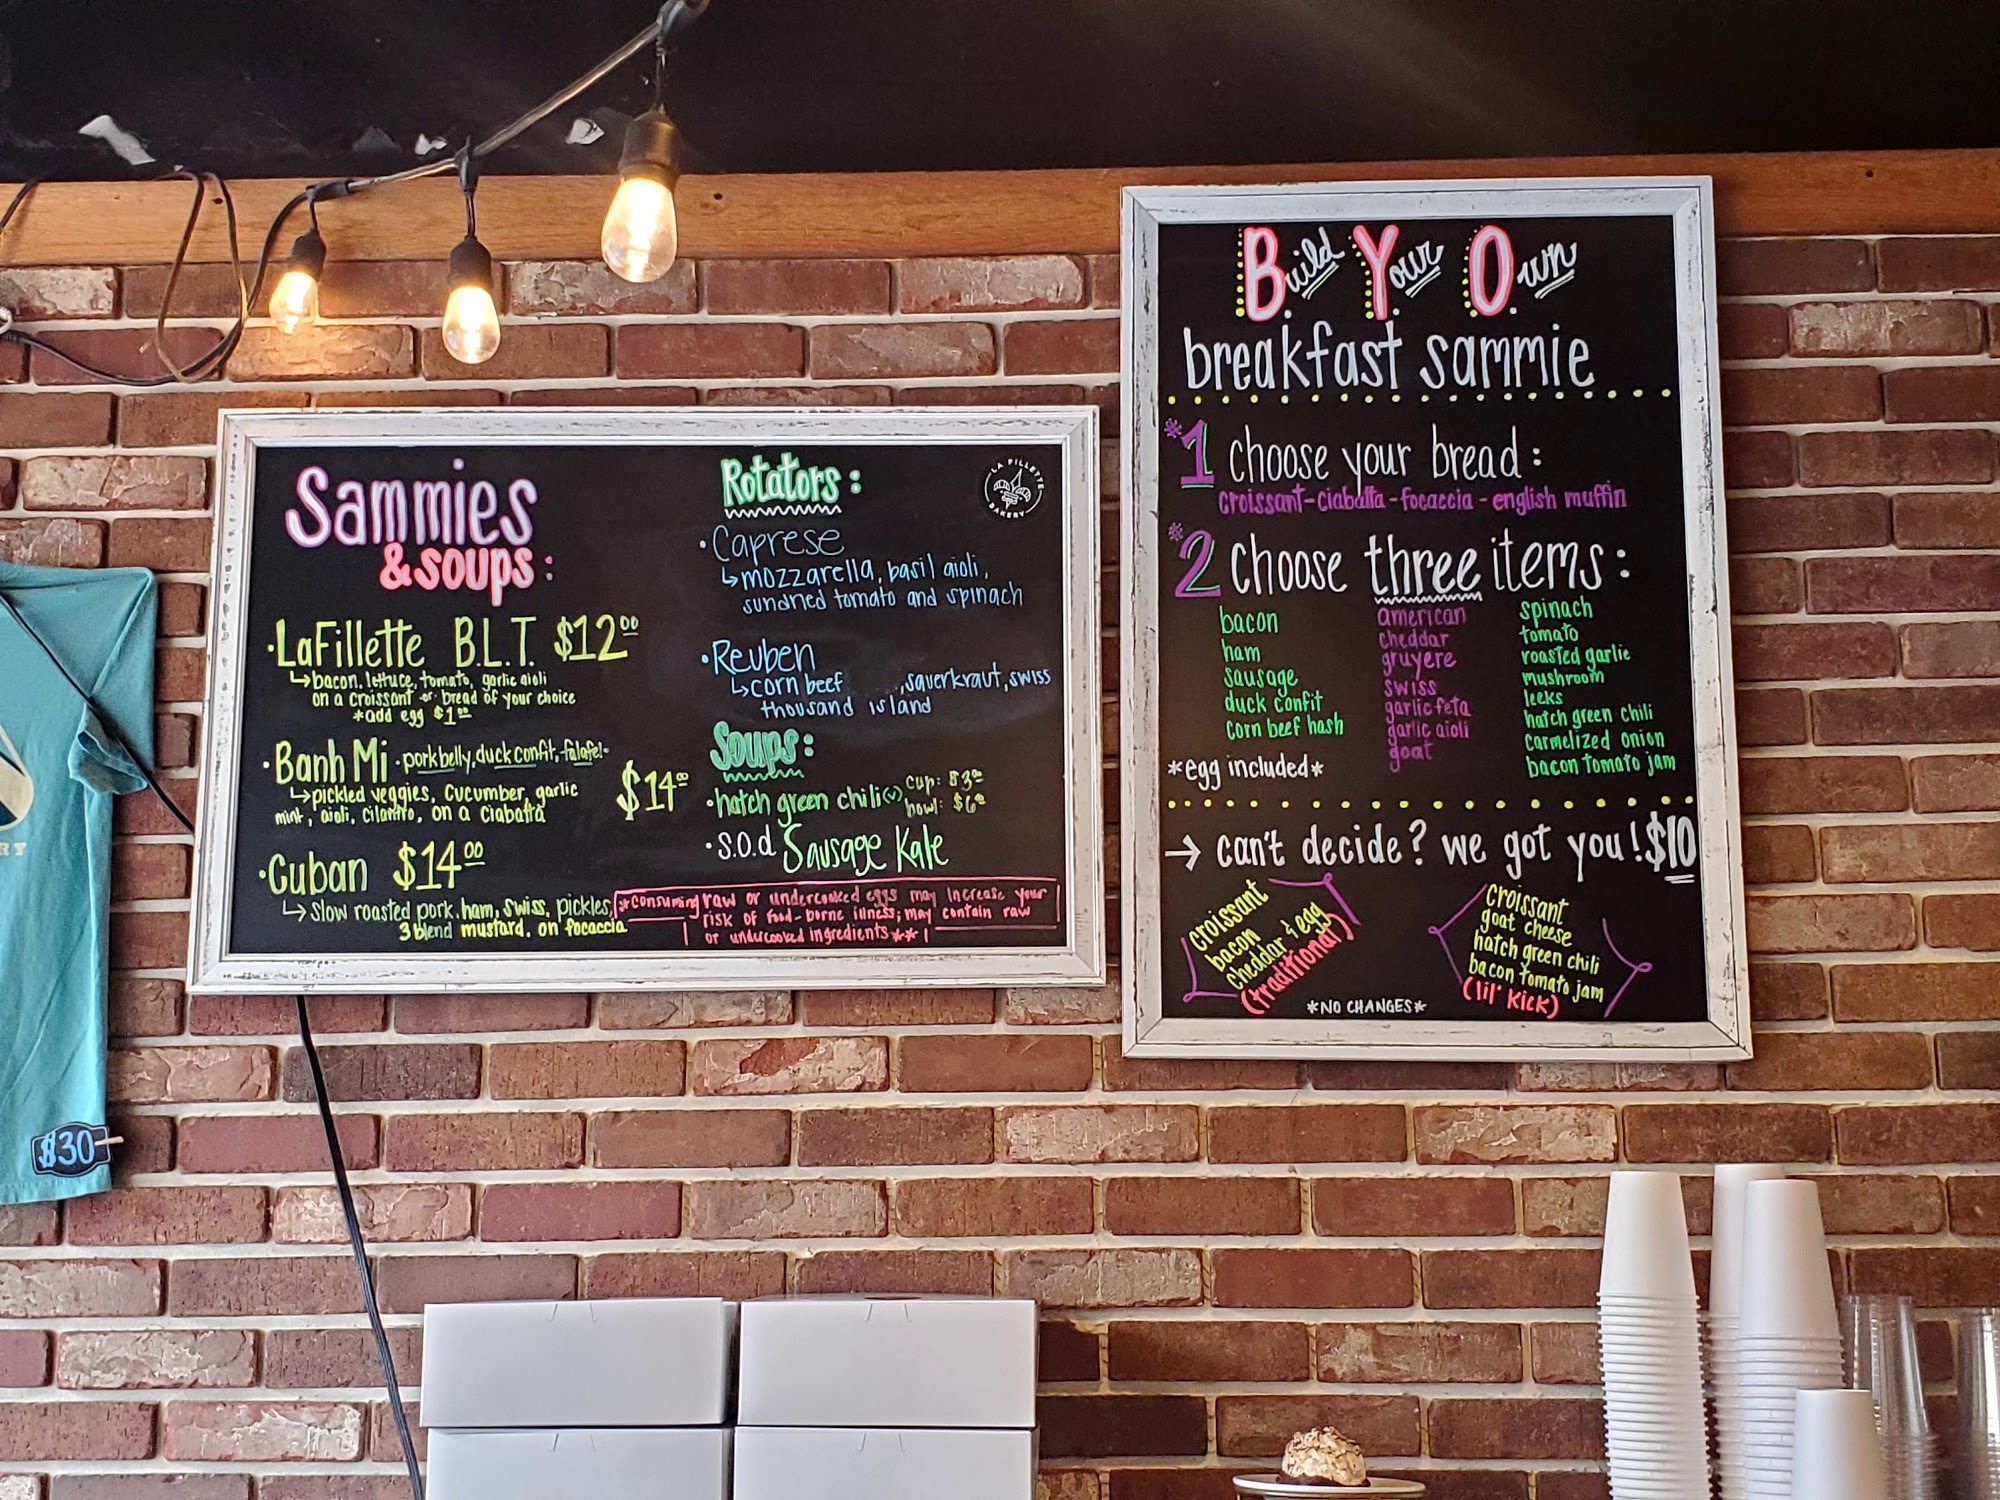 Sammies
& soups:
•LaFillette B.L.T. $12.00
↳bacon, lettuce, tomato, garlic aioli
on a croissant or bread of your choice
*add egg $1.00
•Banh Mi •pork belly, duck confit, falafel•
↳pickled veggies, cucumber, garlic
mint, aioli, cilantro, on a ciabatta
$14.00
•Cuban $14.00
↳slow roasted pork, ham, swiss, pickles,
3 blend mustard, on focaccia
Rotators:
•Caprese
↳mozzarella, basil aioli,
sundried tomato and spinach
•Reuben
↳corn beef ,sauerkraut, swiss
thousand island
Soups:
•hatch green chili(v) cup: $3.00
bowl: $6.00
•S.O.d Sausage Kale
*consuming raw or undercooked eggs may increase your
risk of food-borne illness; may contain raw
or undercooked ingredients**
LA FILLETTE
BAKERY
Build Your Own
breakfast sammie
*1 choose your bread:
croissant-ciabatta-focaccia-english muffin
*2 choose three items:
bacon
ham
sausage
duck confit
corn beef hash
*egg included*
american
cheddar
gruyere
swiss
garlic feta
garlic aioli
goat
spinach
tomato
roasted garlic
mushroom
leeks
hatch green chili
carmelized onion
bacon tomato jam
→ can't decide? we got you! $10
croissant
bacon
cheddar & egg
(traditional)
croissant
goat cheese
hatch green chili
bacon tomato jam
(lil' kick)
*NO CHANGES*
RY
$30